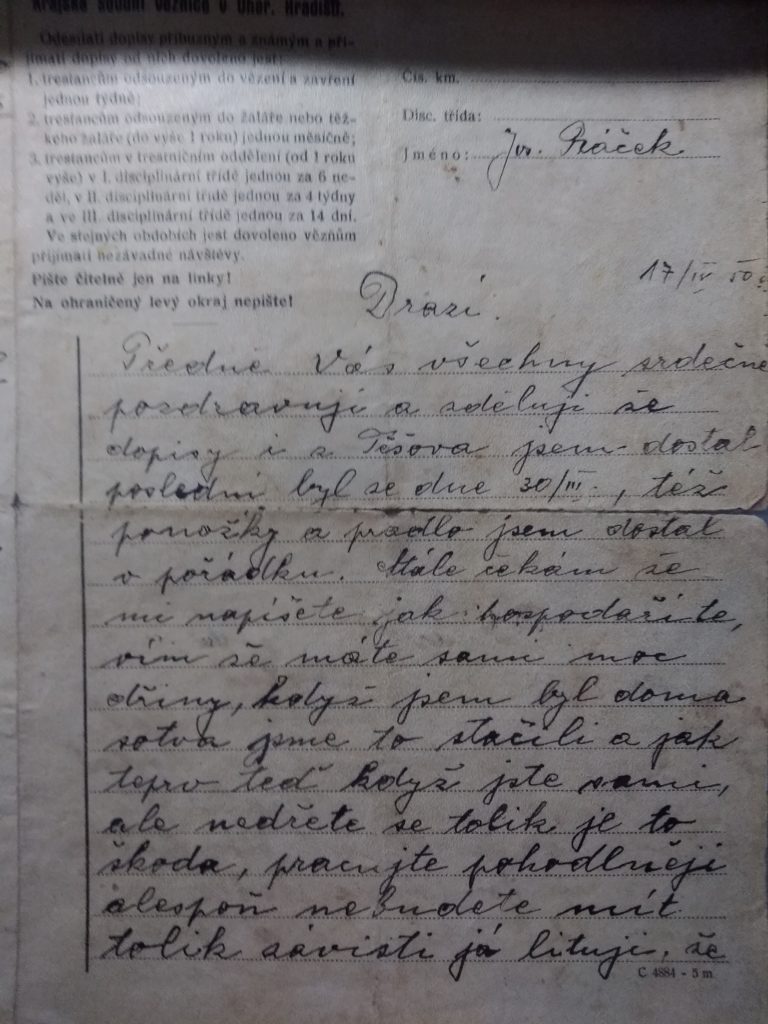 Krajská soudní věznice v Uher. Hradišti.
Odesílati dopisy příbuzným a známým a při-
jímati dopisy od nich dovoleno jest:
1. trestancům odsouzeným do vězení a zavření
jednou týdně;
2. trestancům odsouzeným do žaláře nebo těž-
kého žaláře (do výše 1 roku) jednou měsíčně;
3. trestancům v trestničním oddělení (od 1 roku
výše) v I. disciplinární třídě jednou za 6 ne-
děl, v II. disciplinární třídě jednou za 4 týdny
a ve III. disciplinární třídě jednou za 14 dní.
Ve stejných obdobích jest dovoleno vězňům
přijímati nezávadné návštěvy.
Pište čitelně jen na linky!
Na ohraničený levý okraj nepište!
Čís. km.
Disc. třída:
Jméno: Jos.
17/IV 50
Drazí.
Předně Vás všechny srdečně
pozdravuji a sděluji že
dopisy i z Těšova jsem dostal
poslední byl ze dne 30/III., též
ponožky a prádlo jsem dostal
v pořádku. Stále čekám že
mi napíšete jak hospodaříte,
vím že máte sami moc
dřiny, když jsem byl doma
sotva jsme to stačili a jak
teprv teď když jste sami,
ale nedřete se tolik je to
škoda, pracujte pohodlněji
alespoň nebudete mít
tolik závisti já lituji, že
C 4884 - 5 m.